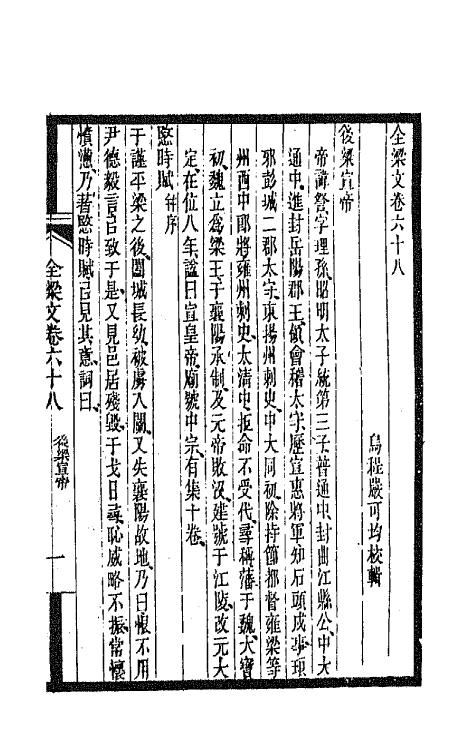 全梁文卷六十八
烏程嚴可均校輯
後梁宣帝
帝諱詧字理孫昭明太子統第三子普通中封曲江縣公中大
通中進封岳陽郡王領會稽太守歷宣惠將軍知石頭戍事琅
邪彭城二郡太守東揚州刺史中大同初除持節都督雍梁等
州西中郎將雍州刺史太清中拒命不受代尋稱藩于魏大寶
初魏立爲梁王于襄陽承制及元帝敗沒建號于江陵改元大
定在位八年謚曰宣皇帝廟號中宗有集十卷
愍時賦并序
于謹平梁之後闔城長幼被虜入關又失襄陽故地乃曰恨不用
尹德毅言㠯致于是又見邑居殘毀干戈日尋恥威略不振常懷
憤懣乃著愍時賦㠯見其意詞曰
全梁文卷六十八
後梁宣帝
一